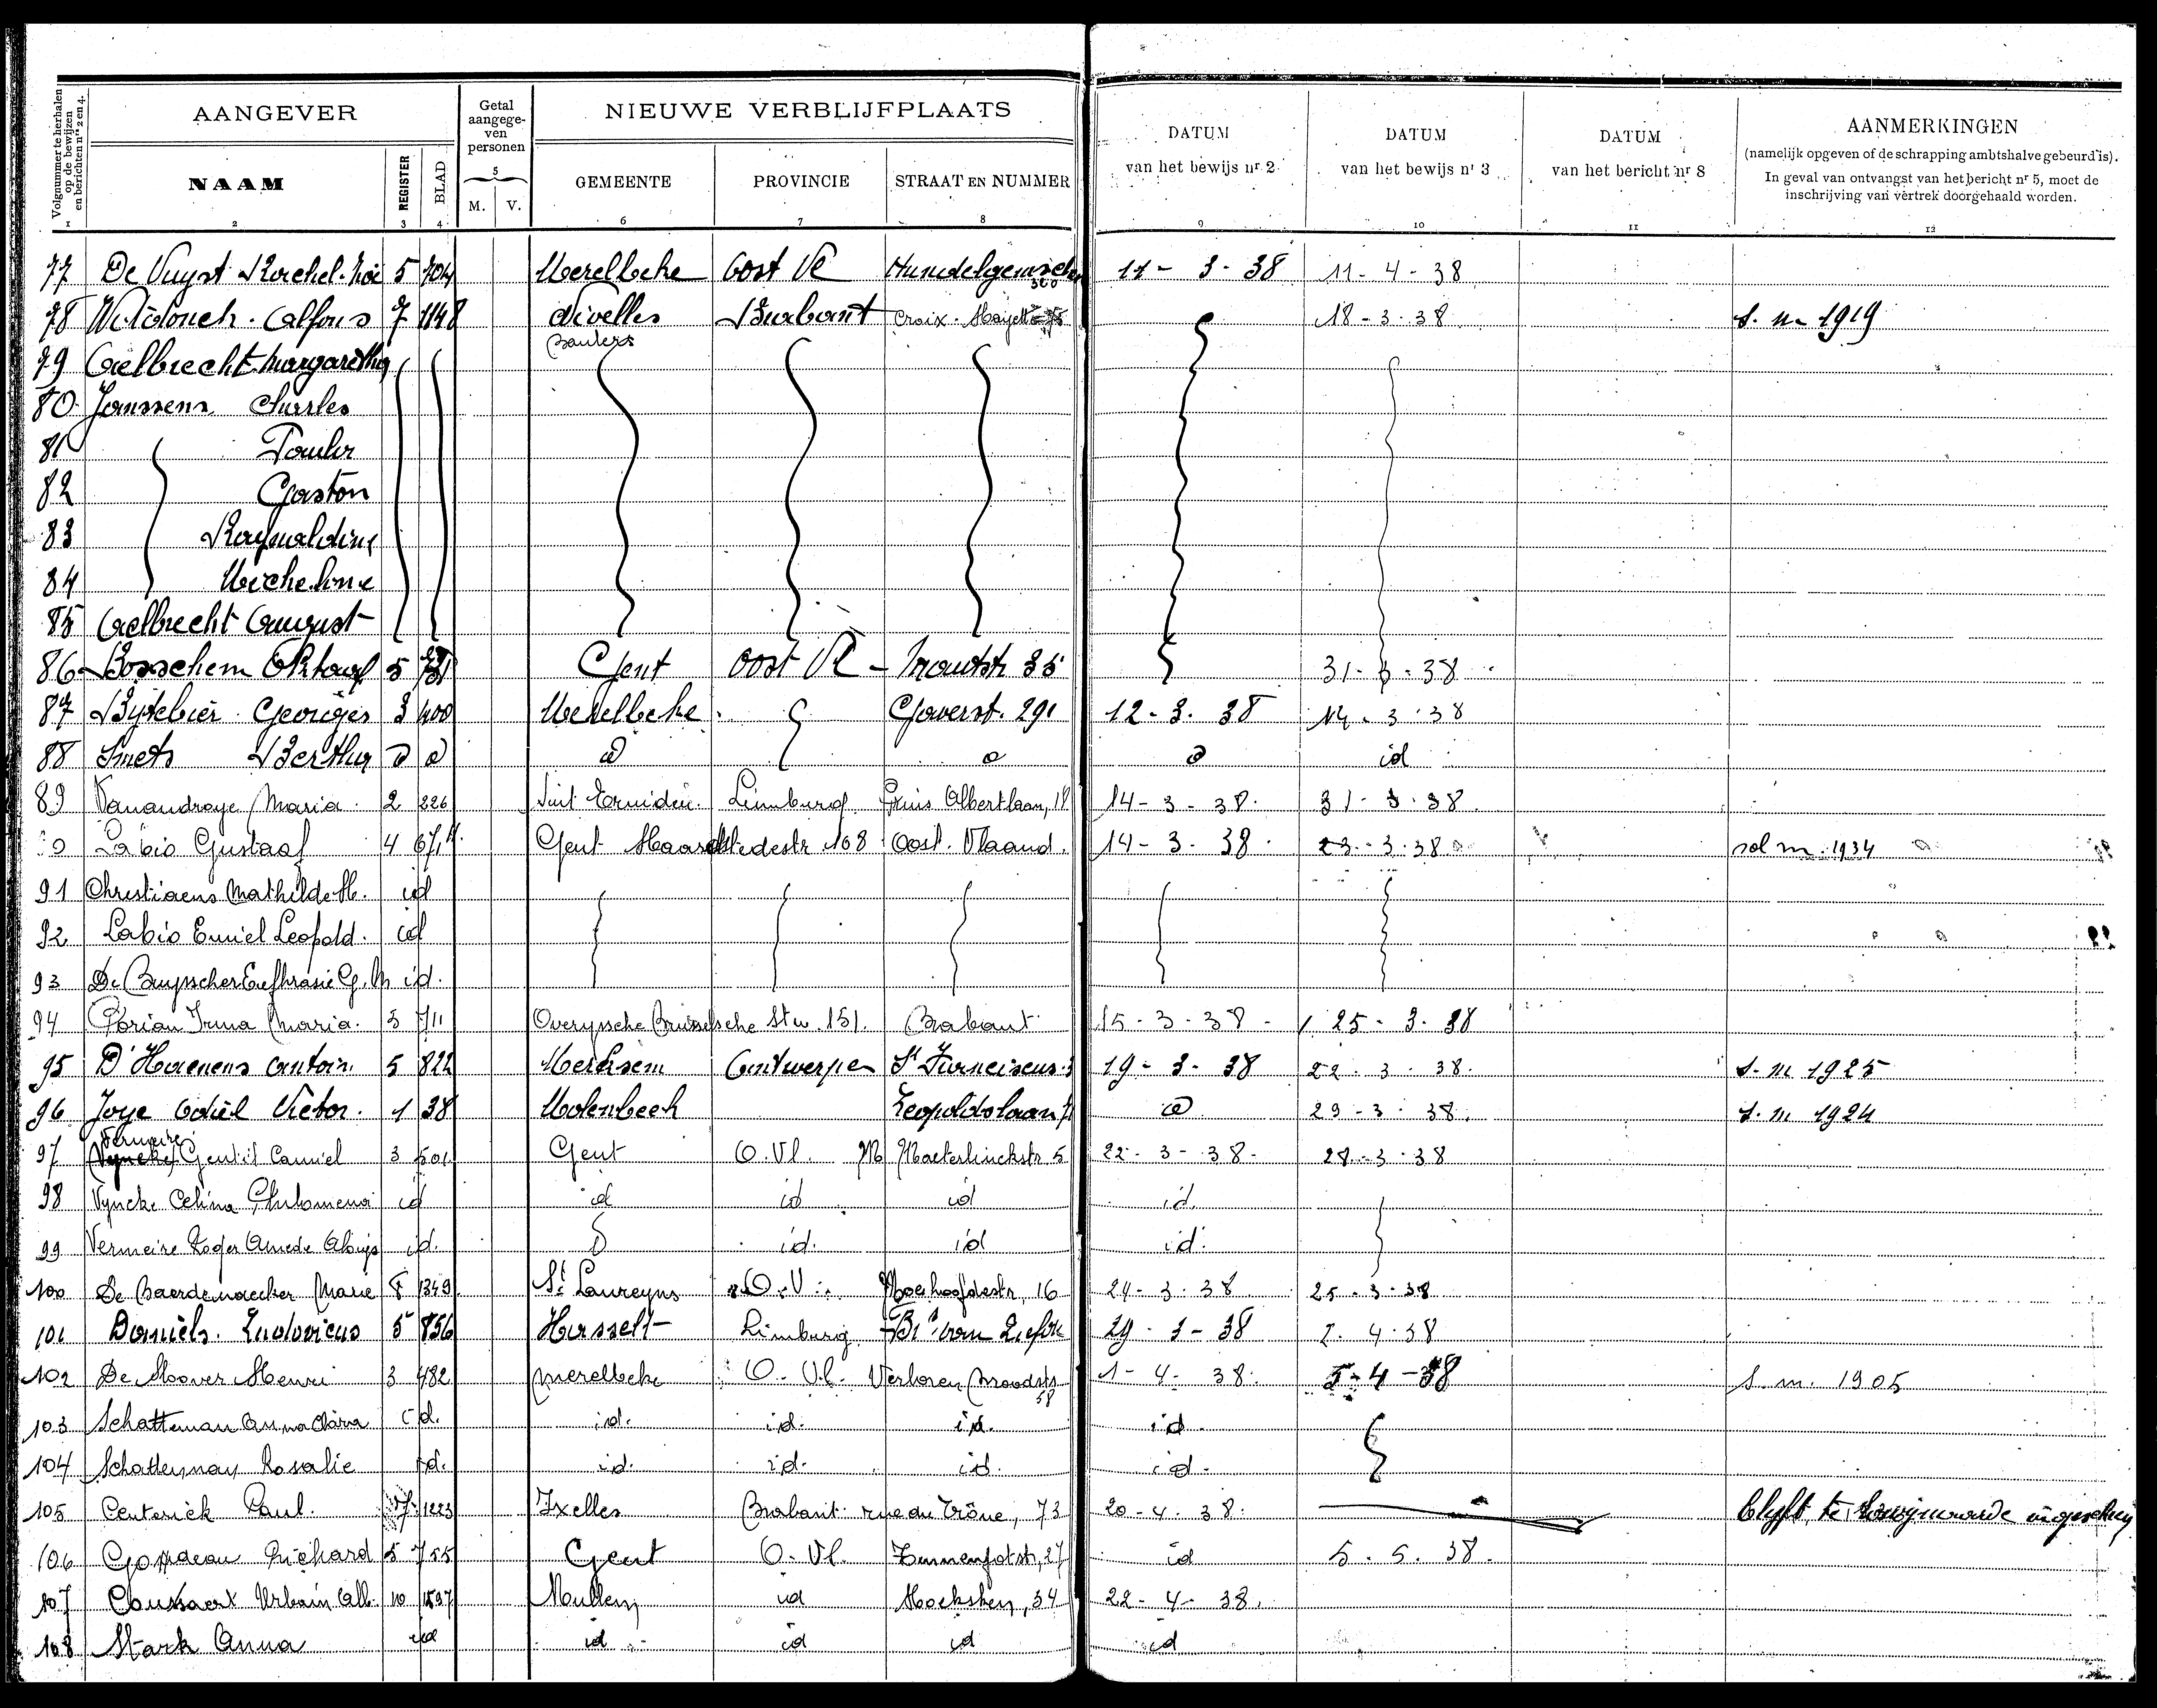 Volgnummer te herhalen op de bewijzen en berichten nrs 2 en 4.
AANGEVER
Getal aangege-ven personen
NIEUWE VERBLIJFPLAATS
DATUM van het bewijs nr 2
DATUM van het bewijs nr 3
DATUM van het bericht nr 8
AANMERKINGEN
(namelijk opgeven of de schrapping ambtshalve gebeurd is).
In geval van ontvangst van het bericht nr 5, moet de
inschrijving van vertrek doorgehaald worden.
NAAM REGISTER BLAD M. V. GEMEENTE PROVINCIE STRAAT EN NUMMER
1 2 3 4 5 6 7 8 9 10 11 12
77 De Vuyst Rachel 5 704 Merelbeke Oost Vl 11 - 3 - 38 11 - 4 - 38
78 Alfons 7 1148 Nivelles Baulers Brabant Croix 18 - 3 - 38 S. m 1919
79 Aelbrecht Margaretha
80 Janssens Charles
81 Paula
82 Gaston
83 Raymaldine
84 Micheline
85 Aelbrecht August
86 Bosschem Oktaaf 5 731 Gent Oost Vl 35 31 - 3 - 38
87 Bytebier Georges 3 400 Merelbeke Gaverst. 291 12 - 3 - 38 14 - 3 - 38
88 Smets Bertha id
89 Vanandroye Maria 2 226 Sint Truiden Limburg Prins Albertlaan, 18 14 - 3 - 38 31 - 3 - 38
Labio Gustaaf 4 671 Gent 168 Oost. Vlaand. 14 - 3 - 38 23 - 3 - 38 sol m. 1934
91 Christiaens Mathilde M. id
92 Labio Emiel Leopold. id
93 De Buysscher Eufhrasie G. M id.
94 Irma Maria. 3 711 Overyssche Brusselsche Stw. 151. Brabant 15 - 3 - 38 25 - 3 - 38
95 D'Haenens Antoin 5 822 Merksem Antwerpen St Franciscus 19 - 3 - 38 22 - 3 - 38. S. m 1925
96 Joye Odiel Victor. 1 38 Molenbeek Leopoldslaan 29 - 3 - 38. S. m 1924
97 Vermeire Vyncke Gentil Camiel 3 501 Gent O. Vl. M Maeterlinckstr 5 22 - 3 - 38 - 28 - 3 - 38
98 Vyncke Celina Philomena id id id id id.
99 Vermeire Roger Amede Aloijs id. id. id id.
100 De Baerdemaecker Marie 8 1349 St Laureyns O. V. Moerhoofdestr, 16 24 - 3 - 38 25 - 3 - 38
101 Daniëls. Ludovicus 5 856 Hasselt Limburg 29 - 3 - 38 2. 4. 38
102 De Moor Henri 3 482 Merelbeke O. Vl. Verloren Broodstr 58 1 - 4 - 38. 5 - 4 - 38 S. m. 1905
103 Schatteman Anna Clara id. id. id. id. id.
104 Schatteman Rosalie id. id. id. id. id.
105 Centerick Paul. 7 1223 Ixelles Brabant rue du Trône, 73 20 - 4 - 38. blyft te ingeschreven
106 Richard 5 755 Gent O. Vl. 27 id 5. 5. 38.
107 Urbain Alb. 10 1597 Mullem id Hoeksken, 34 22 - 4 - 38.
108 Stark Anna id id id id id